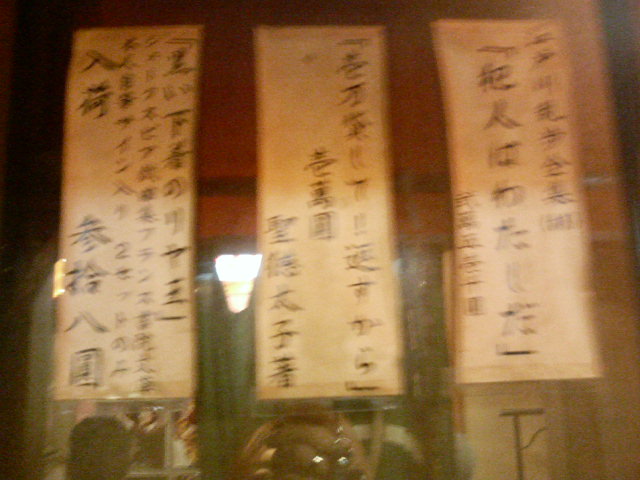 江戸川乱歩全集
『犯人はわたしだ』
『壱万貸して!!返すから』
壱萬圓
聖徳太子著
『黒い下着のリヤ王』
シェークスピア戯曲集フランス書院文庫
本人自筆サイン入り 2セットのみ
入荷 参拾八圓